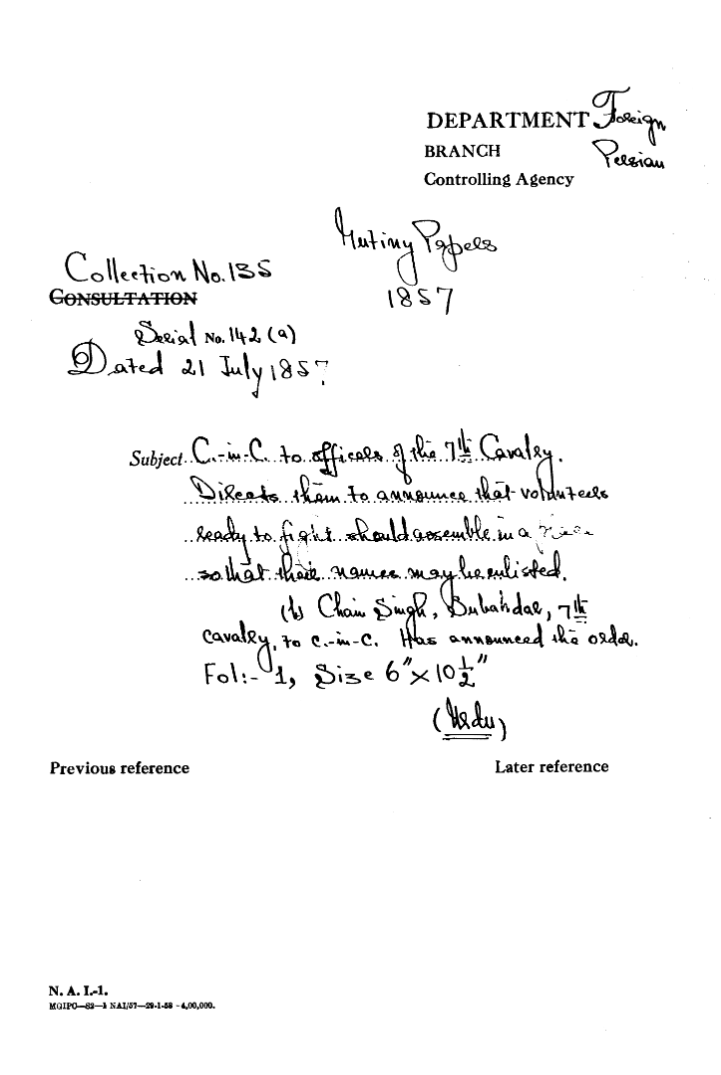 DEPARTMENT Foreign
BRANCH Persian
Controlling Agency
Mutiny Papers
1857
Collection No. 135
CONSULTATION
Serial No. 142 (a)
Dated 21 July 1857
Subject C.-in-C. to officers of the 7th Cavalry.
Directs them to announce that volunteers
ready to fight should assemble in a
so that their names may be enlisted.
(b) Chain Singh, Subahdar, 7th
cavalry, to C.-in-C. Has announced the order.
Fol:- 1, Size 6" × 10 1/2"
(Urdu)
Previous reference Later reference
N. A. I.-1.
MGIPC—S2—1 NAI/57—29-1-58 -4,00,000.